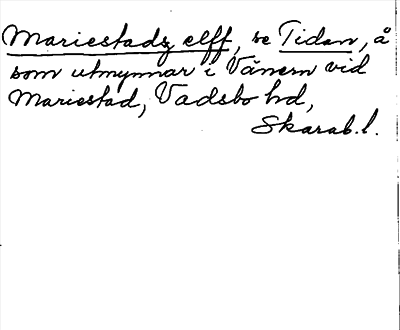 Mariestads elff, se Tidan, å
som utmynnar i Vänern vid
Mariestad, Vadsbo hd,
Skarab.l.